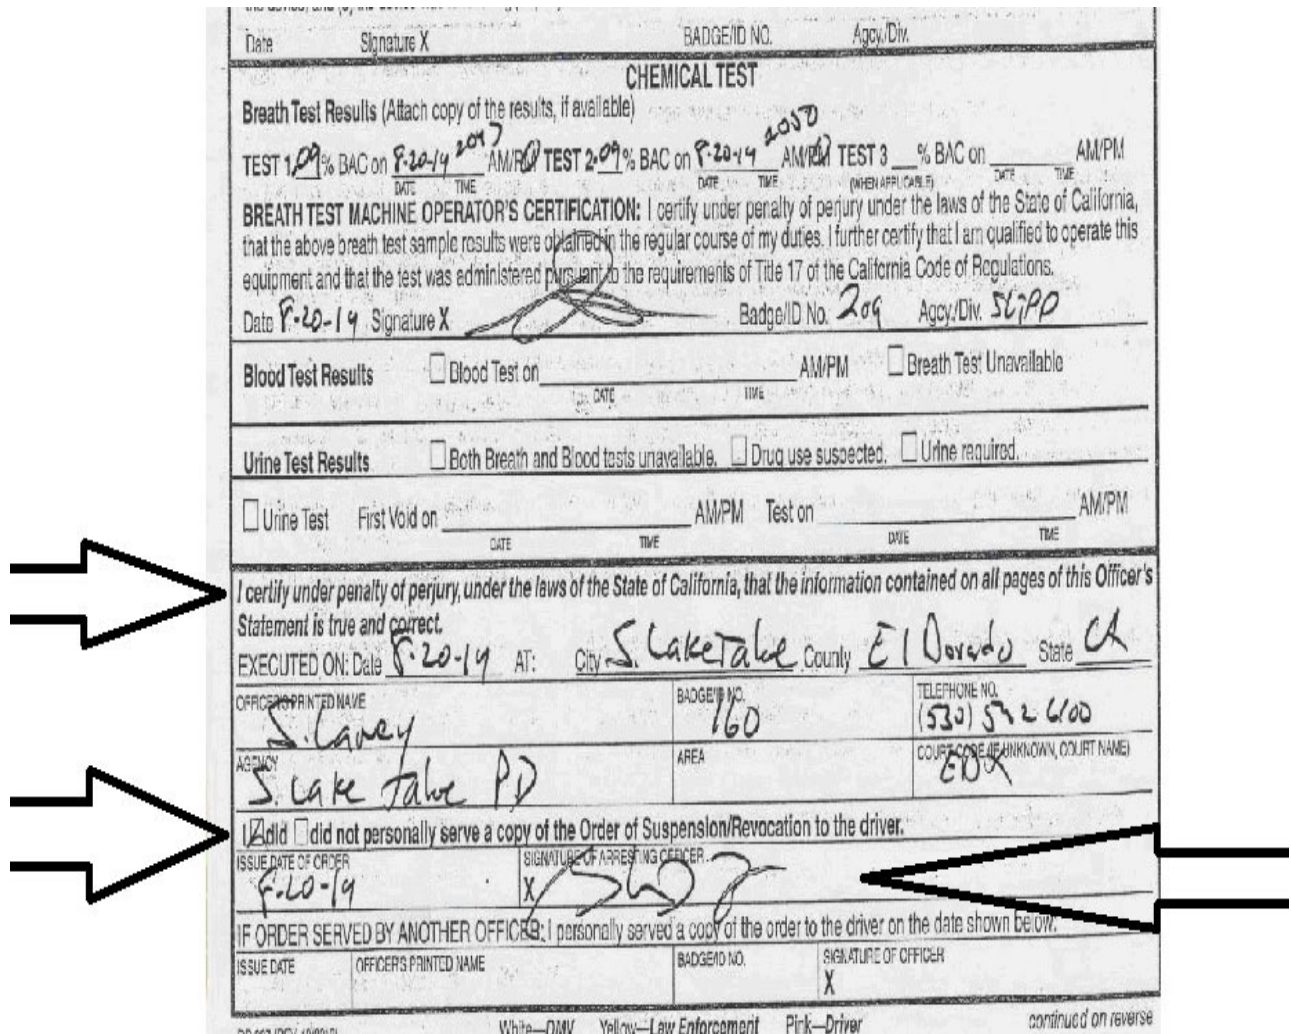 Date Signature X BADGE/ID NO. Agcy./Div.
CHEMICAL TEST
Breath Test Results (Attach copy of the results, if available)
TEST 1 .09 % BAC on 8-20-14 2047 AM/PM TEST 2 .09 % BAC on 8-20-14 2050 AM/PM TEST 3 __% BAC on ______ AM/PM
DATE TIME DATE TIME (WHEN APPLICABLE) DATE TIME
BREATH TEST MACHINE OPERATOR'S CERTIFICATION: I certify under penalty of perjury under the laws of the State of California,
that the above breath test sample results were obtained in the regular course of my duties. I further certify that I am qualified to operate this
equipment and that the test was administered pursuant to the requirements of Title 17 of the California Code of Regulations.
Date 8-20-14 Signature X Badge/ID No. 209 Agcy./Div. SLTPD
Blood Test Results Blood Test on AM/PM Breath Test Unavailable
DATE TIME
Urine Test Results Both Breath and Blood tests unavailable. Drug use suspected. Urine required.
Urine Test First Void on AM/PM Test on AM/PM
DATE TIME DATE TIME
I certify under penalty of perjury, under the laws of the State of California, that the information contained on all pages of this Officer's
Statement is true and correct.
EXECUTED ON: Date 8-20-14 AT: City S. Lake Tahoe County El Dorado State CA
OFFICER'S PRINTED NAME BADGE/ID NO. TELEPHONE NO.
160 (530) 542 6100
AGENCY AREA COURT CODE (IF UNKNOWN, COURT NAME)
S. Lake Tahoe PD
I did did not personally serve a copy of the Order of Suspension/Revocation to the driver.
ISSUE DATE OF ORDER SIGNATURE OF ARRESTING OFFICER
8-20-14 X
IF ORDER SERVED BY ANOTHER OFFICER: I personally served a copy of the order to the driver on the date shown below.
ISSUE DATE OFFICER'S PRINTED NAME BADGE/ID NO. SIGNATURE OF OFFICER
X
White—DMV Yellow—Law Enforcement Pink—Driver continued on reverse